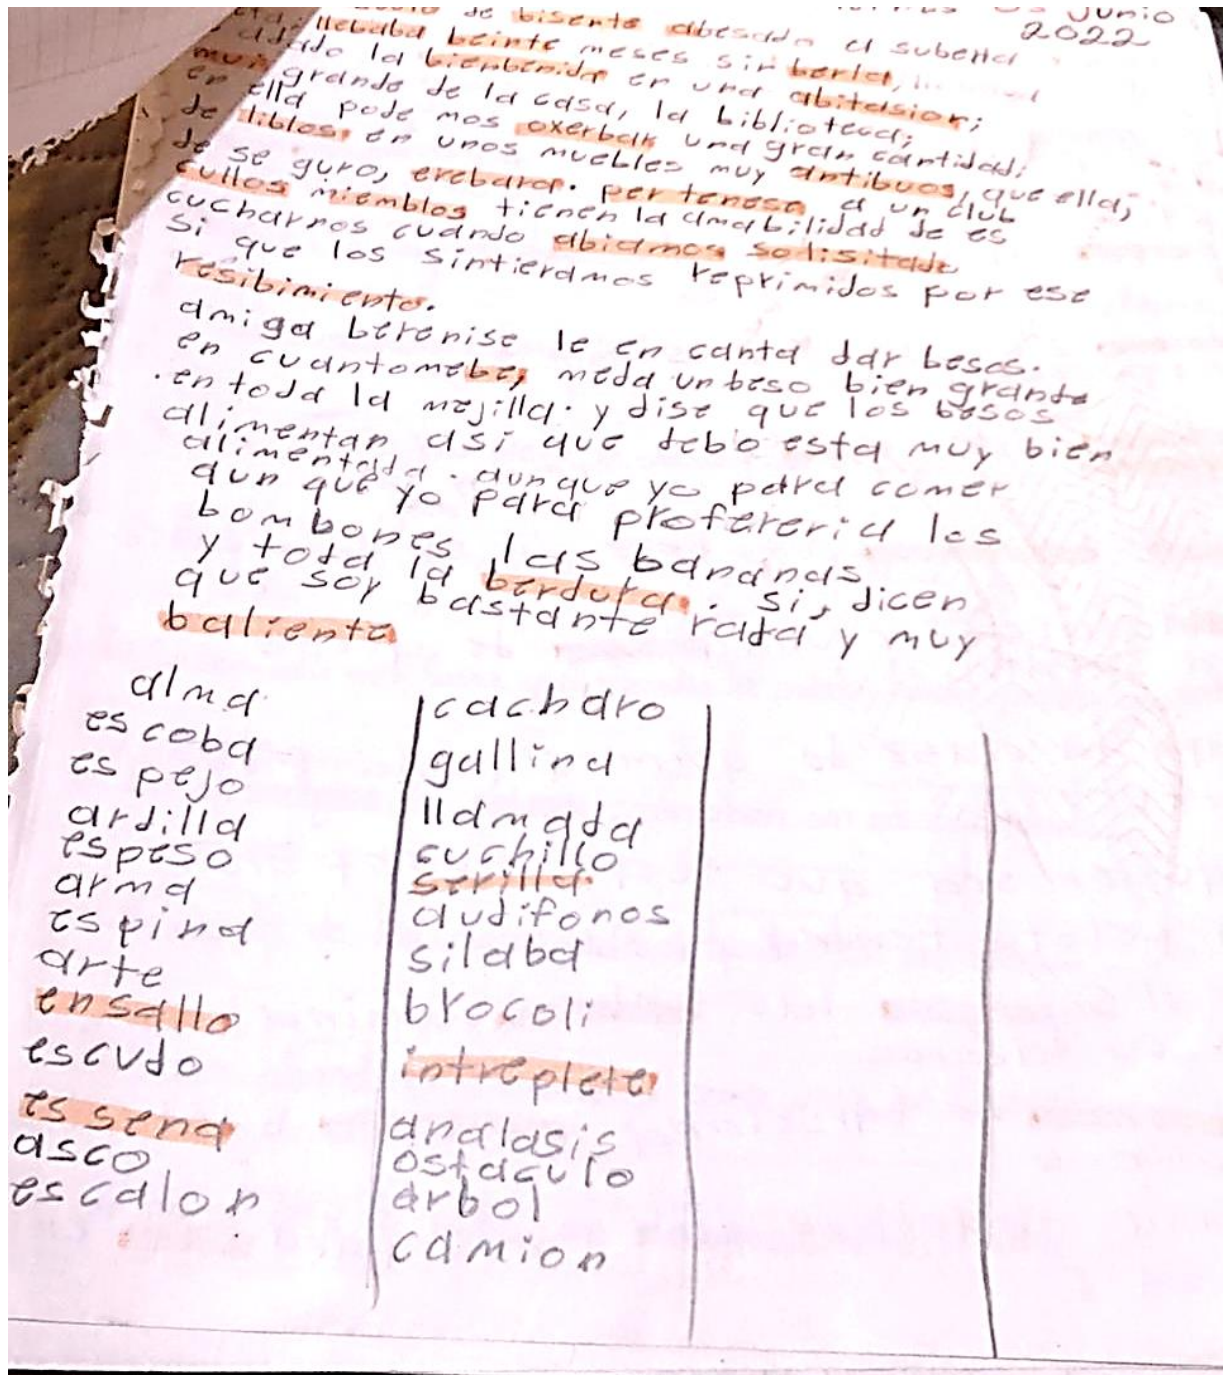 de bisente abesado a subena
junio
2022
llebaba beinte meses sin berla,
dado la bienbenida en una abitasion;
muy grande de la casa, la biblioteca;
en ella pode mos oxerbar una gran cantidad;
de liblos, en unos muebles muy antibuos, que ella,
de se guro, erebaron. pertenese a un club
cullos miemblos tienen la amabilidad de es
cucharnos cuando abiamos solisitado
si que los sintieramos reprimidos por ese
resibimiento.
amiga berenise le en canta dar besos.
en cuantomebe, meda un beso bien grande
.en toda la mejilla. y dise que los besos
alimentan asi que debo esta muy bien
alimentada. aunque yo para comer
aun que yo para profereria los
bombones, las bananas
y toda la berdura. si, dicen
que soy bastante rara y muy
baliente
alma
escoba
es pejo
ardilla
espeso
arma
espina
arte
ensallo
escudo
es sena
asco
escalon
cacharo
gallina
llamada
cuchillo
serilla
audifonos
silaba
brocoli
intreplete
analasis
ostaculo
arbol
camion